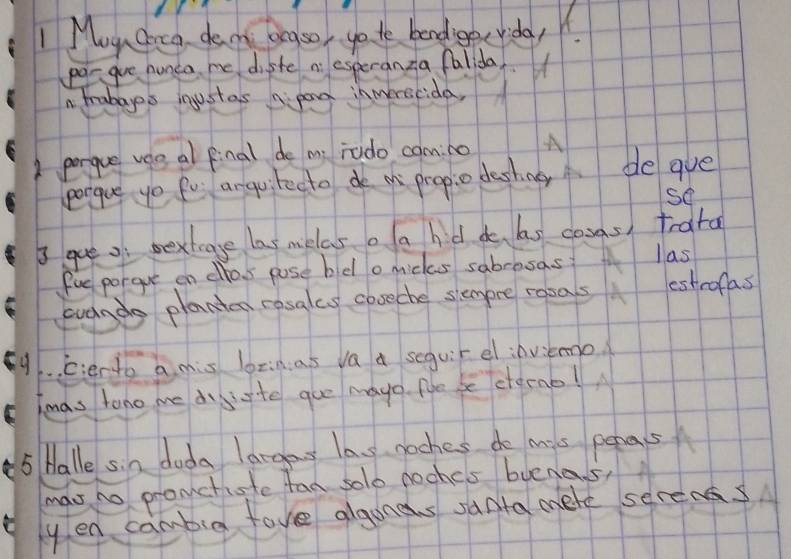 1 Muy Cerca de mi ocaso, yo te bendigo, vida, A
por que nunca me diste ni esperanza falida, A
n trabajos injustos ni pena inmerecida, A
2 porque veo al final de mi rudo camino A
porque yo fui arquitecto de mi propio destino, A
3 que si sextraje las mieles o la hiel de las cosas,
fue porque en ellas puse biel o mieles sabrosas: A
cuando plantea rosales coseche siempre rosas A
de que
se
trata
las
estrofas
4 ... Cierto a mis lozinias va a seguir el invierno A
¡mas tono me dijiste que mayo fue se eterno! A
5 Halle sin duda largas las noches de mis penas A
mas no prometiste tan solo noches buenas, A
y en cambio tove algonas santa mete serenas A